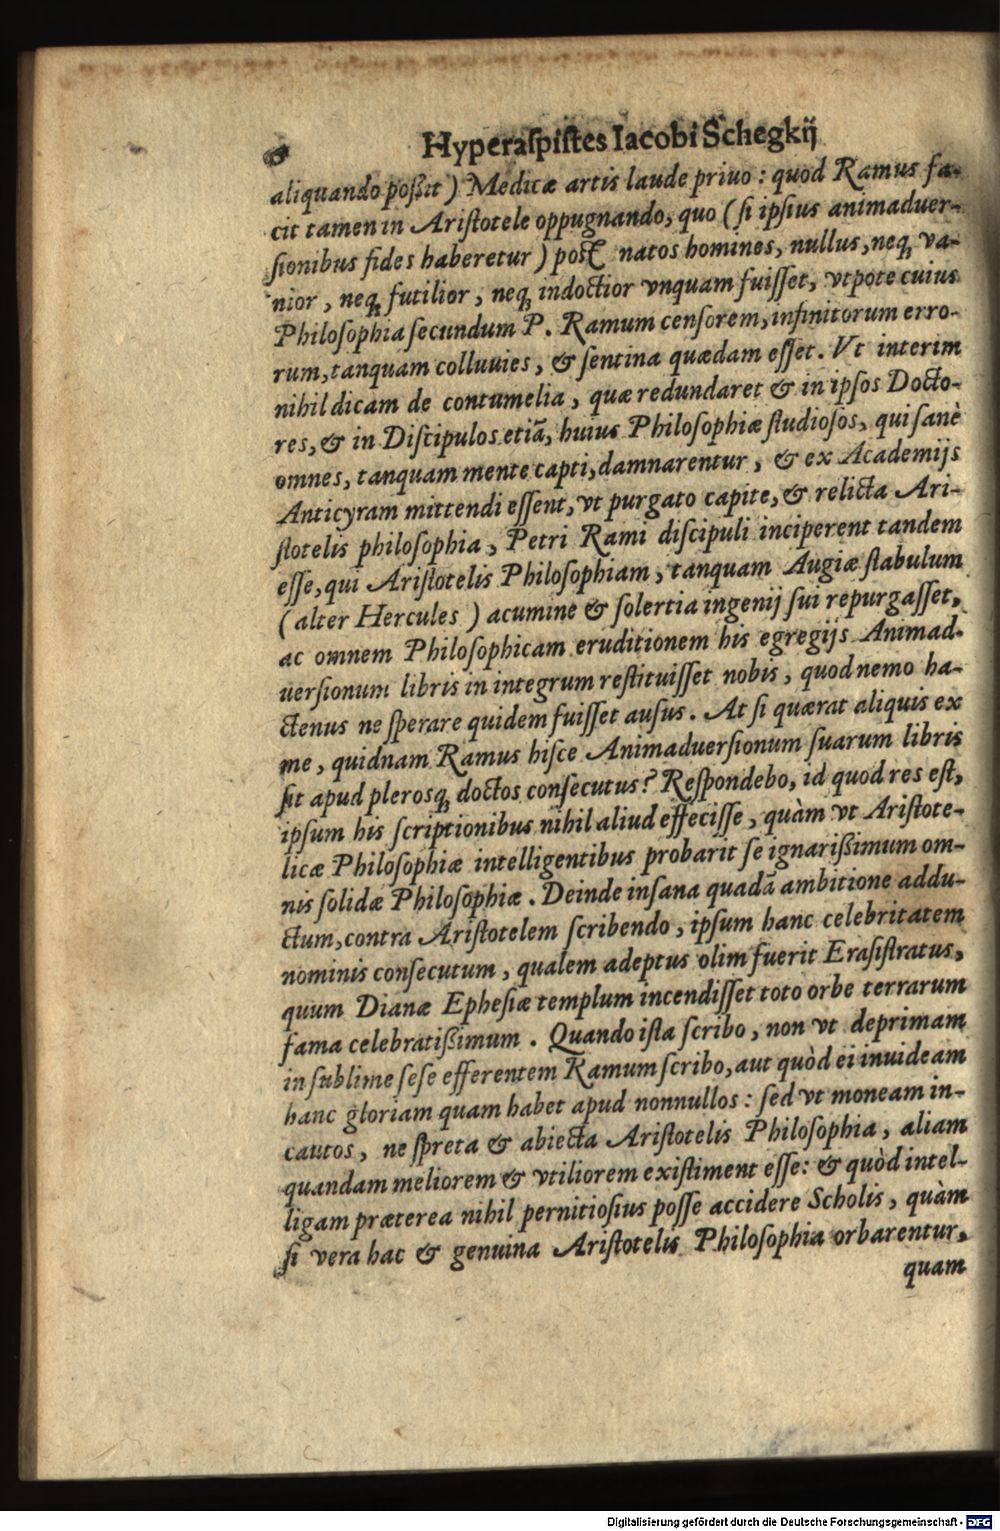 Hyperaſpiſtes Iacobi Schegkij
aliquando poßit) Medicæ artis laude priuo: quod Ramus fa-
cit tamen in Ariſtotele oppugnando, quo (ſi ipſius animaduer-
ſionibus fides haberetur) poſt natos homines, nullus, neq; va-
nior, neq; futilior, neq; indoctior vnquam fuiſſet, vtpote cuius
Philoſophia ſecundum P. Ramum cenſorem, infinitorum erro-
rum, tanquam colluuies, & ſentina quædam eſſet. Vt interim
nihil dicam de contumelia, quæ redundaret & in ipſos Docto-
res, & in Diſcipulos etiã, huius Philoſophiæ ſtudioſos, qui ſanè
omnes, tanquam mente capti, damnarentur, & ex Academijs
Anticyram mittendi eſſent, vt purgato capite, & relicta Ari-
ſtotelis philoſophia, Petri Rami diſcipuli inciperent tandem
eſſe, qui Ariſtotelis Philoſophiam, tanquam Augiæ ſtabulum
(alter Hercules) acumine & ſolertia ingenij ſui repurgaſſet,
ac omnem Philoſophicam eruditionem his egregijs Animad-
uerſionum libris in integrum reſtituiſſet nobis, quod nemo ha-
ctenus ne ſperare quidem fuiſſet auſus. At ſi quærat aliquis ex
me, quidnam Ramus hiſce Animaduerſionum ſuarum libris
ſit apud pleroſq; doctos conſecutus? Reſpondebo, id quod res eſt,
ipſum his ſcriptionibus nihil aliud effeciſſe, quàm vt Ariſtote-
licæ Philoſophiæ intelligentibus probarit ſe ignarißimum om-
nis ſolidæ Philoſophiæ. Deinde inſana quadã ambitione addu-
ctum, contra Ariſtotelem ſcribendo, ipſum hanc celebritatem
nominis conſecutum, qualem adeptus olim fuerit Eraſiſtratus,
quum Dianæ Epheſiæ templum incendiſſet toto orbe terrarum
fama celebratißimum. Quando iſta ſcribo, non vt deprimam
in ſublime ſeſe efferentem Ramum ſcribo, aut quòd ei inuideam
hanc gloriam quam habet apud nonnullos: ſed vt moneam in-
cautos, ne ſpreta & abiecta Ariſtotelis Philoſophia, aliam
quandam meliorem & vtiliorem exiſtiment eſſe: & quòd intel-
ligam præterea nihil pernitioſius poſſe accidere Scholis, quàm
ſi vera hac & genuina Ariſtotelis Philoſophia orbarentur,
quam
Digitalisierung gefördert durch die Deutsche Forschungsgemeinschaft - DFG